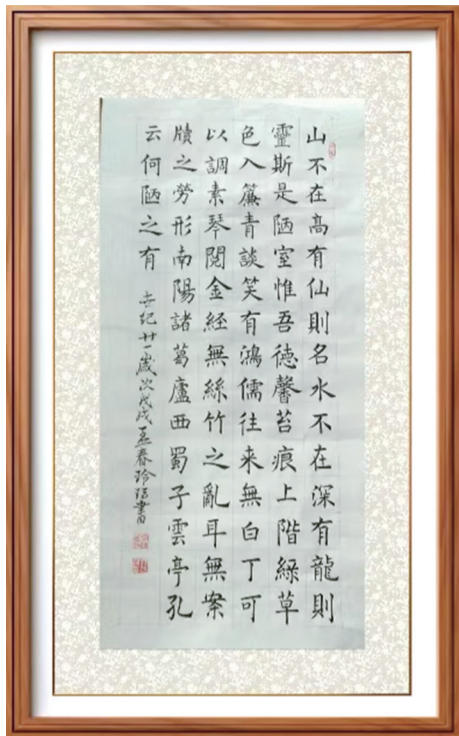 山不在高有仙則名水不在深有龍則
靈斯是陋室惟吾德馨苔痕上階綠草
色入簾青談笑有鴻儒往来無白丁可
以調素琴閱金經無絲竹之亂耳無案
牘之勞形南陽諸葛廬西蜀子雲亭孔
云何陋之有 世紀廿一歲次戊戌孟春玲書